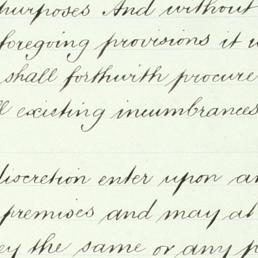 purposes And without
foregoing provisions it
shall forthwith procure
existing incumbrances
discretion enter upon
premises and may at
the same or any